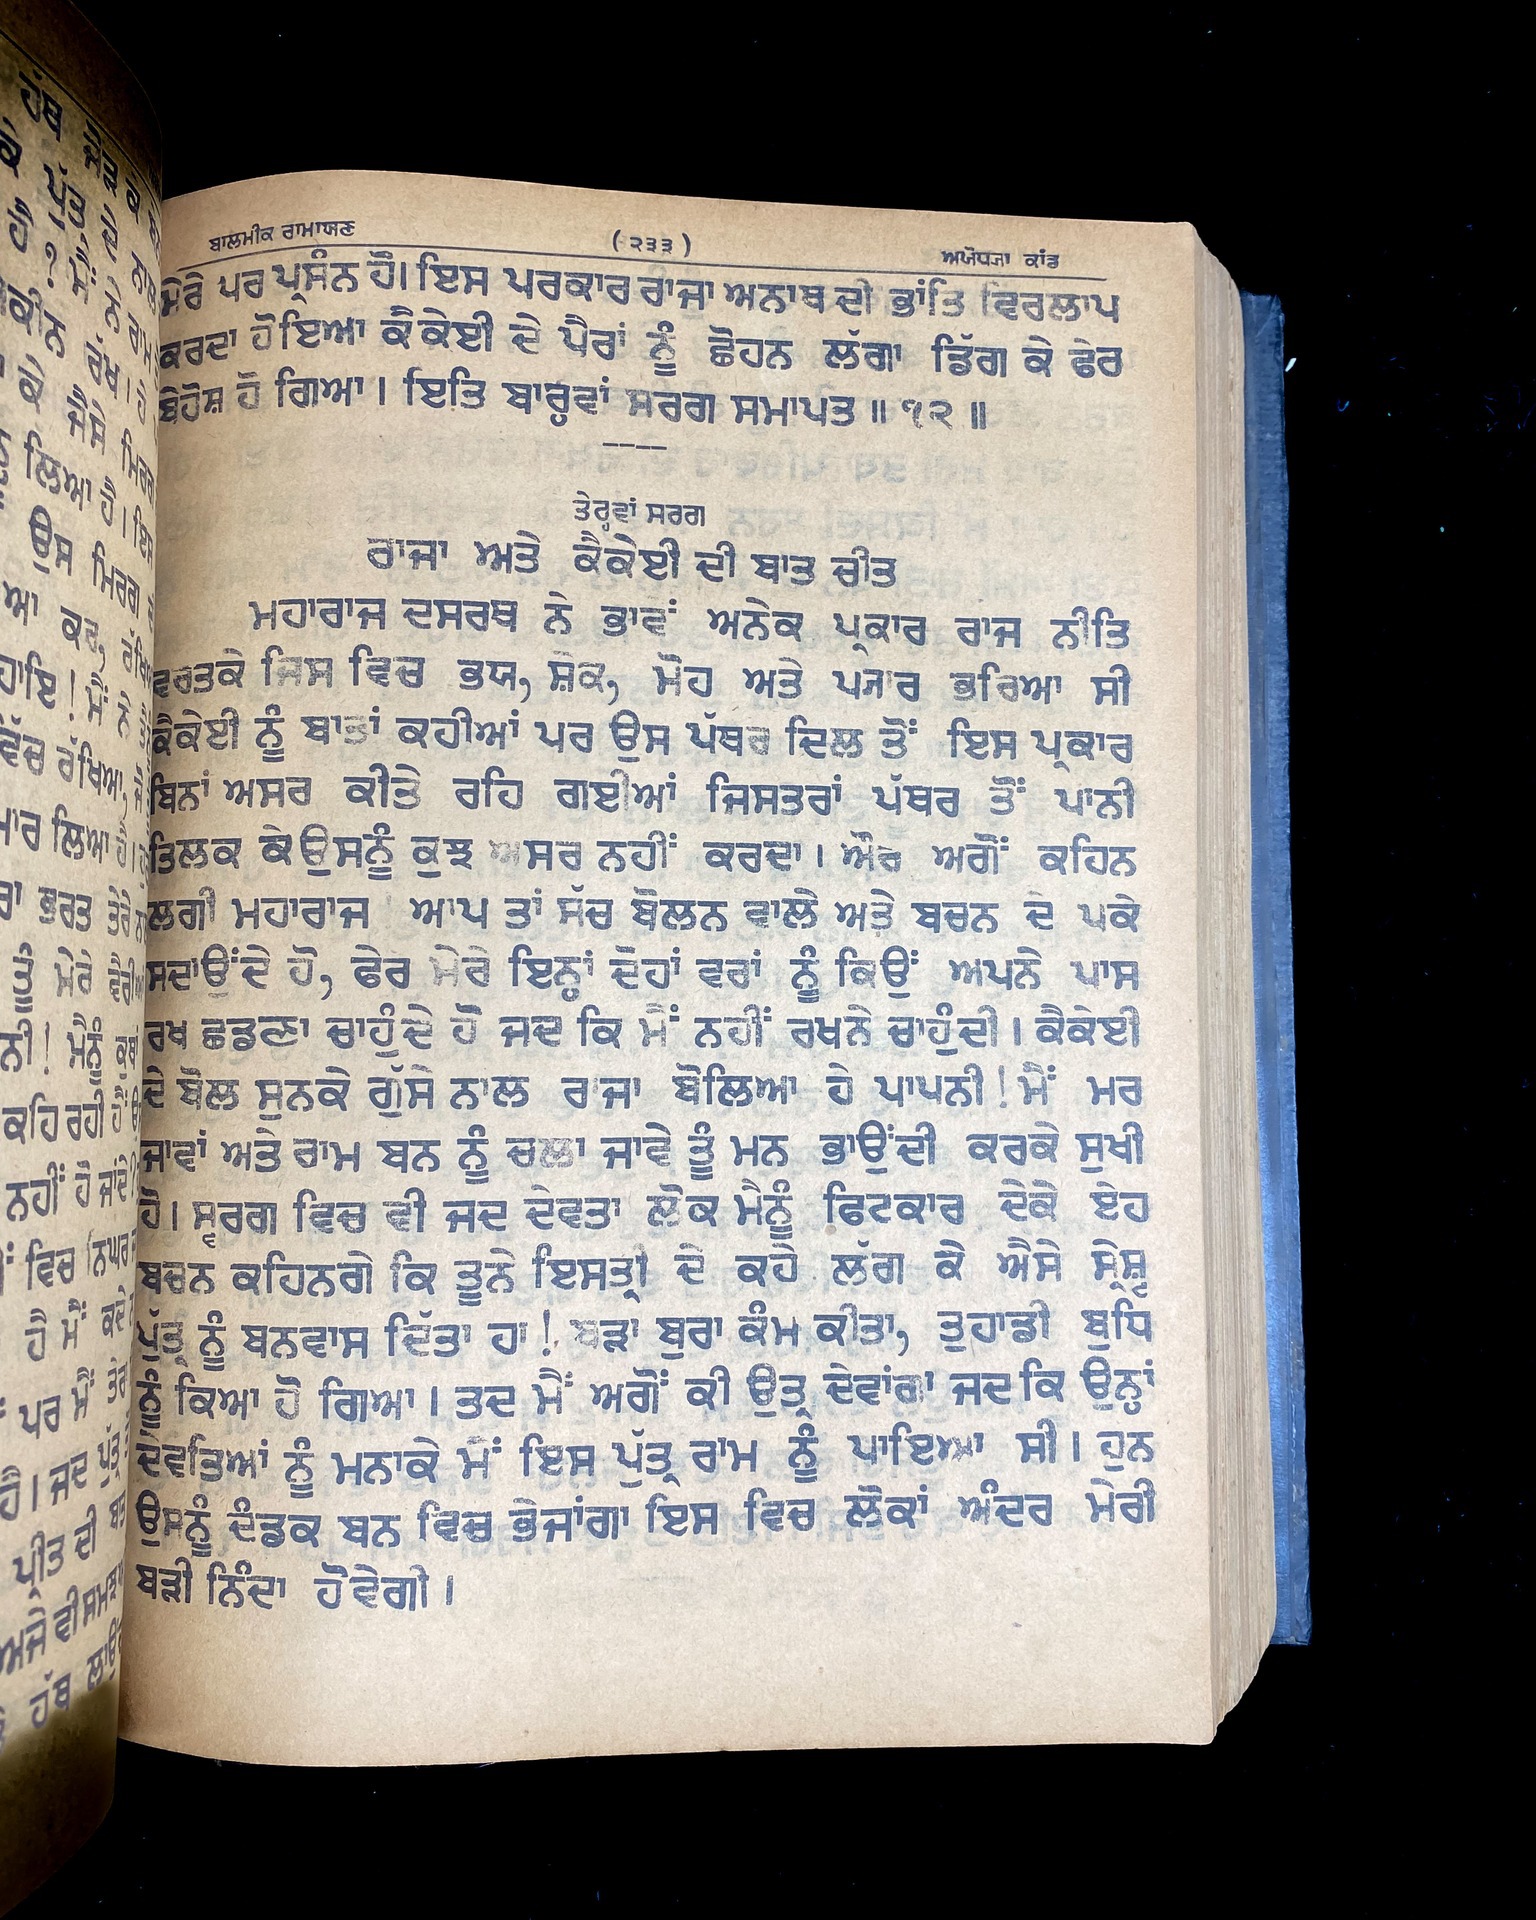 ਬਾਲਮੀਕ ਰਾਮਾਯਣ (੨੩੩) ਅਯੋਧਯਾ ਕਾਂਡ
ਮੇਰੇ ਪਰ ਪ੍ਰਸੰਨ ਹੋ। ਇਸ ਪਰਕਾਰ ਰਾਜਾ ਅਨਾਥ ਦੀ ਭਾਂਤਿ ਵਿਰਲਾਪ
ਕਰਦਾ ਹੋਇਆ ਕੈਕੇਈ ਦੇ ਪੈਰਾਂ ਨੂੰ ਛੋਹਨ ਲੱਗਾ ਡਿੱਗ ਕੇ ਫੇਰ
ਬੇਹੋਸ਼ ਹੋ ਗਿਆ। ਇਤਿ ਬਾਰ੍ਹਵਾਂ ਸਰਗ ਸਮਾਪਤ ॥ ੧੨ ॥
ਤੇਰ੍ਹਵਾਂ ਸਰਗ
ਰਾਜਾ ਅਤੇ ਕੈਕੇਈ ਦੀ ਬਾਤ ਚੀਤ
ਮਹਾਰਾਜ ਦਸਰਥ ਨੇ ਭਾਵੇਂ ਅਨੇਕ ਪ੍ਰਕਾਰ ਰਾਜ ਨੀਤਿ
ਵਰਤਕੇ ਜਿਸ ਵਿਚ ਭਯ, ਸ਼ੋਕ, ਮੋਹ ਅਤੇ ਪਯਾਰ ਭਰਿਆ ਸੀ
ਕੈਕੇਈ ਨੂੰ ਬਾਤਾਂ ਕਹੀਆਂ ਪਰ ਉਸ ਪੱਥਰ ਦਿਲ ਤੋਂ ਇਸ ਪ੍ਰਕਾਰ
ਬਿਨਾਂ ਅਸਰ ਕੀਤੇ ਰਹਿ ਗਈਆਂ ਜਿਸਤਰਾਂ ਪੱਥਰ ਤੋਂ ਪਾਨੀ
ਤਿਲਕ ਕੇ ਉਸਨੂੰ ਕੁਝ ਅਸਰ ਨਹੀਂ ਕਰਦਾ। ਔਰ ਅਗੋਂ ਕਹਿਨ
ਲਗੀ ਮਹਾਰਾਜ ਆਪ ਤਾਂ ਸੱਚ ਬੋਲਨ ਵਾਲੇ ਅਤੇ ਬਚਨ ਦੇ ਪਕੇ
ਸਦਾਉਂਦੇ ਹੋ, ਫੇਰ ਮੇਰੇ ਇਨ੍ਹਾਂ ਦੋਹਾਂ ਵਰਾਂ ਨੂੰ ਕਿਉਂ ਅਪਨੇ ਪਾਸ
ਰਖ ਛਡਣਾ ਚਾਹੁੰਦੇ ਹੋ ਜਦ ਕਿ ਮੈਂ ਨਹੀਂ ਰਖਨੇ ਚਾਹੁੰਦੀ। ਕੈਕੇਈ
ਦੇ ਬੋਲ ਸੁਨਕੇ ਗੁੱਸੇ ਨਾਲ ਰਾਜਾ ਬੋਲਿਆ ਹੇ ਪਾਪਨੀ! ਮੈਂ ਮਰ
ਜਾਵਾਂ ਅਤੇ ਰਾਮ ਬਨ ਨੂੰ ਚਲਾ ਜਾਵੇ ਤੂੰ ਮਨ ਭਾਉਂਦੀ ਕਰਕੇ ਸੁਖੀ
ਹੋ। ਸ੍ਵਰਗ ਵਿਚ ਵੀ ਜਦ ਦੇਵਤਾ ਲੋਕ ਮੈਨੂੰ ਫਿਟਕਾਰ ਦੇਕੇ ਏਹ
ਬਚਨ ਕਹਿਨਗੇ ਕਿ ਤੂਨੇ ਇਸਤ੍ਰੀ ਦੇ ਕਹੇ ਲੱਗ ਕੇ ਐਸੇ ਸ੍ਰੇਸ਼੍ਟ
ਪੁੱਤ੍ਰ ਨੂੰ ਬਨਵਾਸ ਦਿੱਤਾ ਹਾ! ਬੜਾ ਬੁਰਾ ਕੰਮ ਕੀਤਾ, ਤੁਹਾਡੀ ਬੁਧਿ
ਨੂੰ ਕਿਆ ਹੋ ਗਿਆ। ਤਦ ਮੈਂ ਅਗੋਂ ਕੀ ਉਤ੍ਰ ਦੇਵਾਂਗਾ ਜਦ ਕਿ ਉਨ੍ਹਾਂ
ਦੇਵਤਿਆਂ ਨੂੰ ਮਨਾਕੇ ਮੈਂ ਇਸ ਪੁੱਤ੍ਰ ਰਾਮ ਨੂੰ ਪਾਇਆ ਸੀ। ਹੁਨ
ਉਸਨੂੰ ਦੰਡਕ ਬਨ ਵਿਚ ਭੇਜਾਂਗਾ ਇਸ ਵਿਚ ਲੋਕਾਂ ਅੰਦਰ ਮੇਰੀ
ਬੜੀ ਨਿੰਦਾ ਹੋਵੇਗੀ।